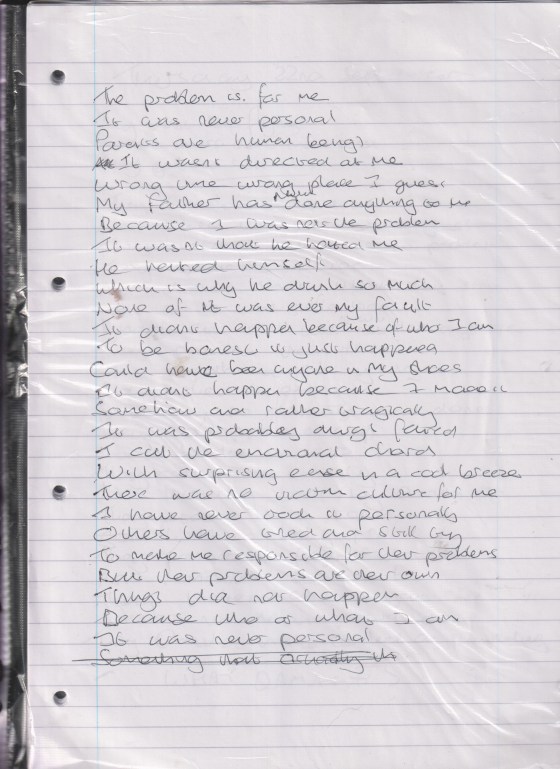 The problem is. for me
It was never personal
Parents are human beings
It wasnt directed at me
Wrong time wrong place I guess
My Father has never done anything to me
Because I was not the problem
It wasnt that he hated me
He hated himself
Which is why he drank so much
None of it was ever my fault
It didnt happen because of who I am
To be honest it just happened
Could have been anyone in my shoes
It didnt happen because I made it
Somehow and rather tragically
It was probably always fated
I cut the emotional chord
With surprising ease in a cool breeze
There was no victim culture for me
I have never took it personally
Others have tried and still try
To make me responsible for their problems
But their problems are their own
Things did not happen
Because who or what I am
It was never personal
Something that actually